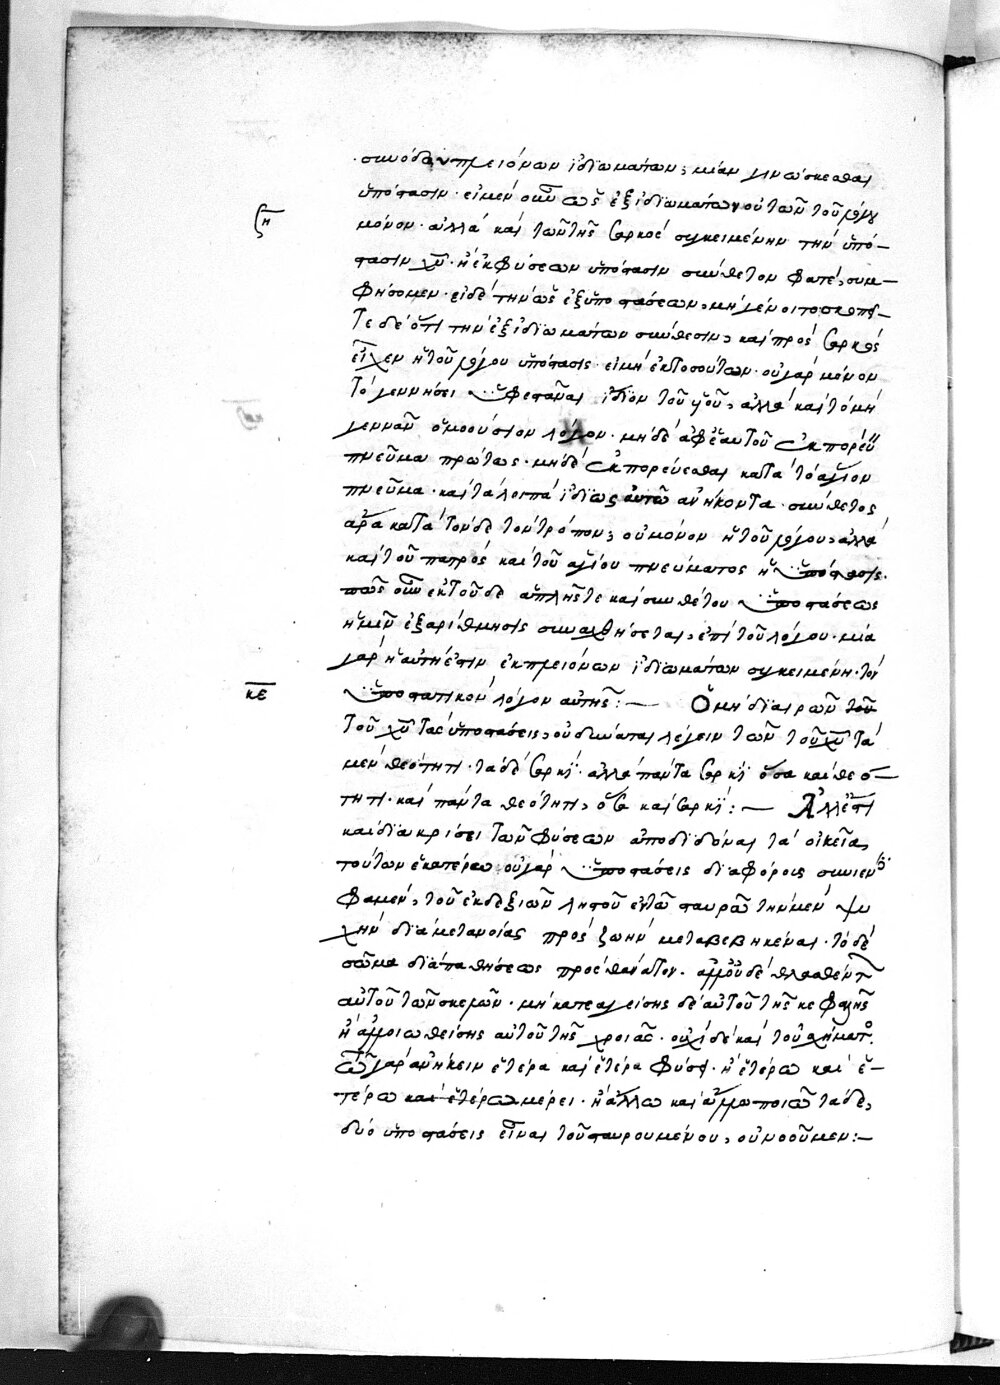 συνόδῳ πλειόνων ἰδιωμάτων, μίαν γινώσκεσθαι
ὑπόστασιν· εἰ μὲν οὖν ὡς ἐξ ἰδιωμάτων οὐ τῶν τοῦ λόγου
ζη
μόνον· ἀλλὰ καὶ τῶν τῆς σαρκὸς συγκειμένην τὴν ὑπό-
στασιν χυ· ἢ ἐκ φύσεων ὑπόστασιν σύνθετον φατέ, συμ-
φήσομεν· εἰ δὲ τὴν ὡς ἐξ ὑποστάσεων, μὴ γένοιτο
τε δὲ ὅτι τὴν ἐξ ἰδιωμάτων σύνθεσιν, καὶ πρὸς σαρκὸς
εἶχεν ἡ τοῦ λόγου ὑπόστασις· εἰ μὴ ἐκ τοσούτων· οὐ γὰρ μόνον
τὸ ἴδιον τοῦ υἱοῦ, ἀλλὰ καὶ τὸ μὴ
γεννᾶν ὁμοούσιον λόγον· μηδὲ ἀφ' ἑαυτοῦ ἐκπορεύειν
πνεῦμα πρώτως· μηδὲ ἐκπορεύεσθαι κατὰ τὸ ἅγιον
πνεῦμα· καὶ τὰ λοιπὰ ἰδίως αὐτῷ ἀνήκοντα· σύνθετος
ἄρα κατὰ τόνδε τὸν τρόπον, οὐ μόνον ἡ τοῦ λόγου, ἀλλὰ
καὶ τοῦ πατρὸς καὶ τοῦ ἁγίου πνεύματος ἡ ὑπόστασις·
πῶς οὖν ἐκ τοῦδε ἁπλῆς τε καὶ συνθέτου ὑποστάσεως
ἡμῖν ἐξαρίθμησις συναχθήσεται, ἐπὶ τοῦ λόγου· μία
γὰρ ἡ αὐτή ἐστιν ἐκ πλειόνων ἰδιωμάτων συγκειμένη· τὸν
κε
ὑποστατικὸν λόγον αὐτῆς:— Ὁ μὴ διαιρῶν τοῦ
τοῦ χυ τὰς ὑποστάσεις, οὐ δύναται λέγειν τῶν τοῦ χυ τὰ
μὲν θεότητι· τὰ δὲ σαρκί· ἀλλὰ πάντα σαρκὶ ὅσα καὶ θεό-
τητι· καὶ πάντα θεότητι, ὅσα καὶ σαρκί:— Ἀλλ' ἔστι
καὶ διακρίσει τῶν φύσεων ἀποδιδόναι τὰ οἰκεῖα,
τούτων ἑκατέρῳ· οὐ γὰρ ὑποστάσεις διαφόροις
φαμέν, τοῦ ἐκ δεξιῶν λῃστοῦ ἐν τῷ σταυρῷ τὴν μὲν ψυ
χὴν διὰ μετανοίας πρὸς ζωὴν μεταβεβηκέναι· τὸ δὲ
σῶμα διὰ παθήσεως πρὸς θάνατον· ἀλλ' οὐδὲ θλασθέντων
αὐτοῦ τῶν σκελῶν· μὴ κατεαγείσης δὲ αὐτοῦ τῆς κεφαλῆς
ἢ ἀλλοιωθείσης αὐτοῦ τῆς χροιᾶς· οὐχὶ δὲ καὶ τοῦ σχήματος·
ἑτέρα καὶ ἑτέρα φύσει· ἢ ἑτέρῳ καὶ ἑ-
τέρῳ καὶ ἑτέρῳ μέρει· ἢ ἄλλῳ καὶ ἄλλῳ ποιῷ τάδε,
δύο ὑποστάσεις εἶναι τοῦ σταυρουμένου, οὐ νοοῦμεν:—